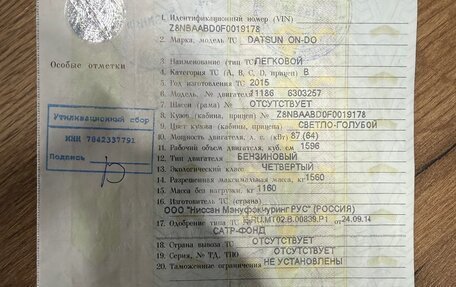 1. Идентификационный номер (VIN)
Z8NBAABD0F0019178
2. Марка, модель ТС DATSUN ON-DO
Особые отметки
3. Наименование (тип ТС) ЛЕГКОВОЙ
4. Категория ТС (A, B, C, D, прицеп) B
5. Год изготовления ТС 2015
6. Модель, № двигателя 11186 6303257
7. Шасси (рама) № ОТСУТСТВУЕТ
8. Кузов (кабина, прицеп) № Z8NBAABD0F0019178
9. Цвет кузова (кабины, прицепа) СВЕТЛО-ГОЛУБОЙ
10. Мощность двигателя, л. с. (кВт) 87 (64)
11. Рабочий объем двигателя, куб. см 1596
12. Тип двигателя БЕНЗИНОВЫЙ
13. Экологический класс ЧЕТВЕРТЫЙ
14. Разрешенная максимальная масса, кг 1560
15. Масса без нагрузки, кг 1160
16. Изготовитель ТС (страна)
ООО "Ниссан Мэнуфэкчуринг РУС" (РОССИЯ)
17. Одобрение типа ТС № RU.MT02.B.00839.P1 от 24.09.14
САТР-ФОНД
18. Страна вывоза ТС ОТСУТСТВУЕТ
19. Серия, № ТД, ТПО ОТСУТСТВУЕТ
20. Таможенные ограничения НЕ УСТАНОВЛЕНЫ
Утилизационный сбор
ИНН 7842337791
Подпись